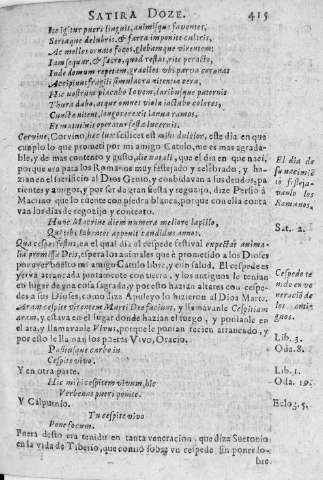 SATIRA DOZE. 415
Ite igitur pueri linguis, animisque fauentes,
Sertaque delubris, & farra imponite cultris,
Ac molles ornate focos, glebamque virentem;
Iam sequar, & sacro, quod restat, rite peracto,
Inde domum repetam, graciles vbi parua coronas
Accipiunt fragili simulacra nitentia cera,
Hic nostrum placabo Iouem, laribusque paternis
Thura dabo, atque omnes violæ iactabo colores,
Cuncta nitent, longos erexit ianua ramos,
Et matutinis operatur festa lucernis.
Ceruine, Corvino, hæc lux scilicet est mihi dulcior, este dia en que
cumplo lo que prometi por mi amigo Catulo, me es mas agrada-
ble, y de mas contento y gusto, die natali, que el dia en que naci,
porque era para los Romanos muy festejado y celebrado, y ha-
zian en el sacrificio al Dios Genio, y combidavan a sus deudos, pa
rientes y amigos, y por ser de gran fiesta y regozijo, dize Persio a
Macrino que lo cuente con piedra blanca, porque con ella conta
van los dias de regozijo y contento.
El dia de
su nacimië
to festeja-
vanlo los
Romanos.
Hunc Macrine diem numera meliore lapillo,
Qui tibi labentes apponit candidus annos.
Sat. 2.
Qua cespes festus, en el qual dia el cespede festival expectat anima-
lia promissa Deis, espera los animales que è prometido a los Dioses
por aver buelto mi amigo Catulo libre, y en salvo. El cespede es
yerva arrancada juntamente con tierra, y los antiguos le tenian
en lugar de una cosa sagrada, y por esto hazian altares con cespe-
des a sus Dioses, como dize Apuleyo lo hizieron al Dios Marte.
Aram cespite virentem Marti Deo faciunt, y llamavanle Cespitiam
aram, y estava en el lugar donde hazian el fuego, y ponianle en
el ara, y llamavanle Vivus, porque le ponian recien arrancado, y
por esso le llaman los poetas Vivo, Oracio.
Cespede te
nido en ve
neraciõ de
los antiguos.
Positusque carbo in
Cespite vivo.
Lib. 3.
Oda. 8.
Y en otra parte.
Hic mihi cespitem vivum, hic
Verbenas pueri ponite.
Lib. 1.
Oda. 19.
Y Calpurnio.
Tu cespite vivo
Pone focum.
Eclog. 5.
Fuera desto era tenido en tanta veneracion, que dize Suetonio
en la vida de Tiberio, que comiò sobre un cespede sin poner so-
bre.